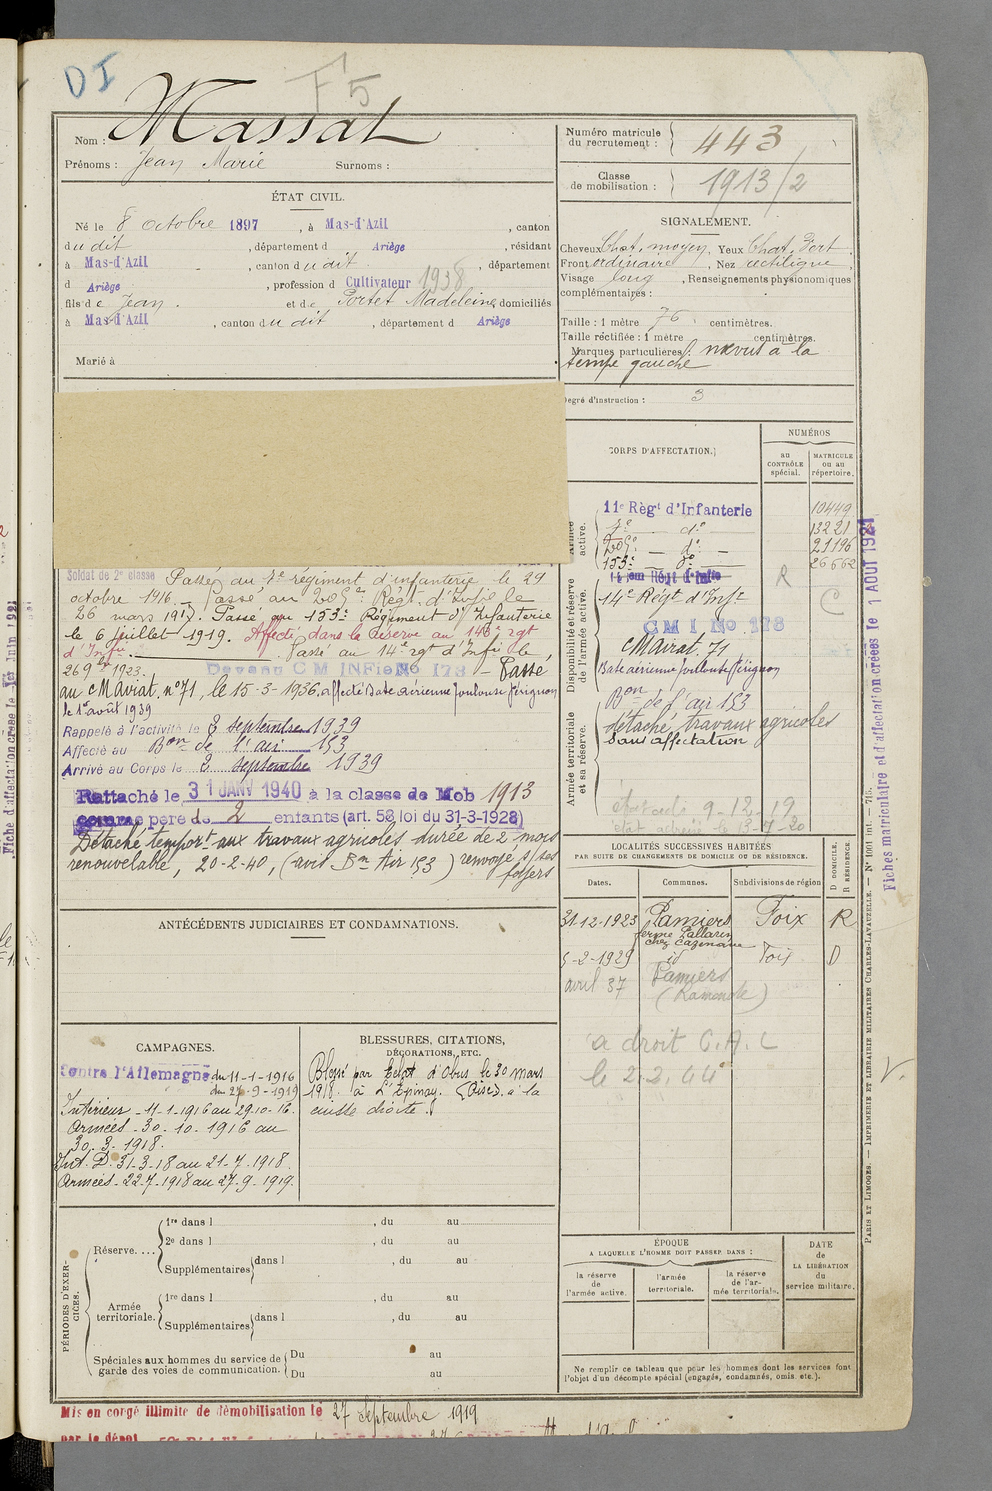 DI
F5
Nom : Massat
Prénoms : Jean Marie Surnoms :
Numéro matricule du recrutement : 443
Classe de mobilisation : 1913/2
ÉTAT CIVIL.
Né le 8 octobre 1897, à Mas-d'Azil, canton
du dit, département d Ariège, résidant
à Mas-d'Azil, canton du dit, département
d Ariège, profession d Cultivateur 1938
fils de Jean. et de Portet Madeleine domiciliés
à Mas-d'Azil, canton du dit, département d Ariège
Marié à
SIGNALEMENT.
Cheveux Chat. moyen, Yeux Chat. Fort.
Front ordinaire, Nez rectiligne,
Visage long, Renseignements physionomiques
complémentaires :
Taille : 1 mètre 76 centimètres.
Taille rectifiée : 1 mètre centimètres.
Marques particulières : nævus à la
tempe gauche
Degré d'instruction : 3
CORPS D'AFFECTATION.
NUMÉROS
au CONTRÔLE spécial.
MATRICULE ou au répertoire.
Armée active.
11e Règt d'Infanterie 10449
7e — do — 13221
209e — do — 21196
153e — do 26562
Disponibilité et réserve de l'armée active.
14em Régt d'Infie R
14e Régt d'Infie C
C M I No 178
CM Aviat. 71
Base aérienne Toulouse Pérignon
Armée territoriale et sa réserve.
Bon de l'air 153
détaché travaux agricoles
Sans affectation
9-12-19
Soldat de 2e classe Passé au 7e régiment d'infanterie le 29
octobre 1916. — Passé au 209e Régt. d'Infie le
26 mars 1917. Passé au 153e Régiment d'Infanterie
le 6 juillet 1919. Affecté dans la réserve au 146e rgt
d'Infie. Passé au 14e rgt d'Infie le
26 9bre 1923. Devenu C M INFie No 178 — Passé
au CM Aviat. n°71, le 15-3-1936, affecté Base aérienne Toulouse Pérignon
le 1er août 1939
Rappelé à l'activité le 2 septembre 1939
Affecté au Bon de l'air 153
Arrivé au Corps le 2 septembre 1939
Rattaché le 31 JANV 1940 à la classe de Mob 1913
comme père de 2 enfants (art. 58 loi du 31-3-1928)
Détaché temport aux travaux agricoles durée de 2 mois
renouvelable, 20-2-40, (avis Bn Air 153) renvoyé s/ses
foyers
ANTÉCÉDENTS JUDICIAIRES ET CONDAMNATIONS.
LOCALITÉS SUCCESSIVES HABITÉES
PAR SUITE DE CHANGEMENTS DE DOMICILE OU DE RÉSIDENCE.
Dates. Communes. Subdivisions de région D DOMICILE. R RÉSIDENCE.
31-12-1923 Pamiers Foix R
ferme Pallarin
chez Cazenave
5-2-1929 id Foix D
avril 37 Pamiers
a droit C.A.C
le 2.2.44
CAMPAGNES.
Contre l'Allemagne du 11-1-1916
au 27-9-1919
Intérieur - 11-1-1916 au 29-10-16.
Armées - 30-10-1916 au
30-3-1918.
Int. D. 31-3-18 au 21-7-1918.
Armées - 22-7-1918 au 27-9-1919.
BLESSURES, CITATIONS,
DÉCORATIONS, ETC.
Blessé par éclat d'obus le 30 mars
1918 à L'Epinay. (Oise) à la
cuisse droite.
PÉRIODES D'EXERCICES.
Réserve.... 1re dans l , du au
2e dans l , du au
Supplémentaires dans l , du au
Armée territoriale. 1re dans l , du au
Supplémentaires dans l , du au
Spéciales aux hommes du service de garde des voies de communication. Du au
Du au
ÉPOQUE
A LAQUELLE L'HOMME DOIT PASSER DANS :
la réserve de l'armée active.
l'armée territoriale.
la réserve de l'armée territoriale.
DATE de LA LIBÉRATION du service militaire.
Ne remplir ce tableau que pour les hommes dont les services font
l'objet d'un décompte spécial (engagés, condamnés, omis. etc.).
Mis en congé illimité de démobilisation le 27 Septembre 1919
par le dépôt
Fiches matriculaire et d'affectation créées le 1 AOUT 1921
PARIS ET LIMOGES. — IMPRIMERIE ET LIBRAIRIE MILITAIRES CHARLES-LAVAUZELLE. — N° 1001 int. — 715.